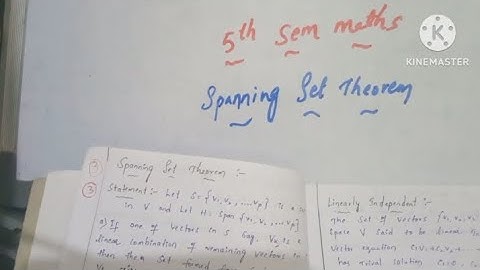 5th Sem maths
K
KINEMASTER
Spanning Set Theorem
Spanning Set Theorem :-
③ Statement:- Let S = {v₁, v₂, .... vₚ} is a
in V and Let H = Span {v₁, v₂, .... vₚ}
a) If one of vectors in S say
linear combination of remaining vectors in
then the set formed
Linearly Independent :-
The Set of vectors {v₁, v₂,
space V said to be linear
vector equation
has trivial solution C₁=0,